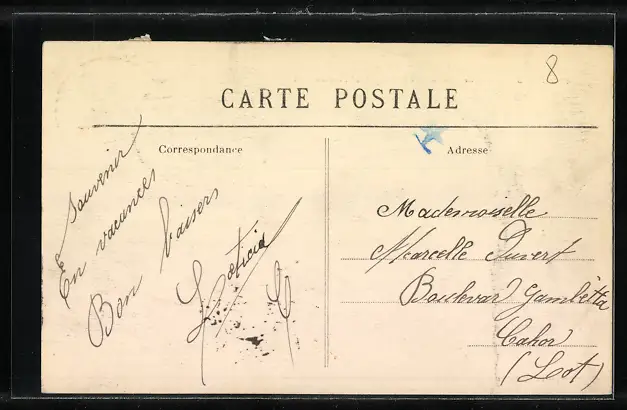 8
CARTE POSTALE
Correspondance
Adresse
Souvenir
En vacances
Bon baisers
Laeticia
Mademoiselle
Marcelle Duvert
Boulevard Gambetta
Cahor
(Lot)